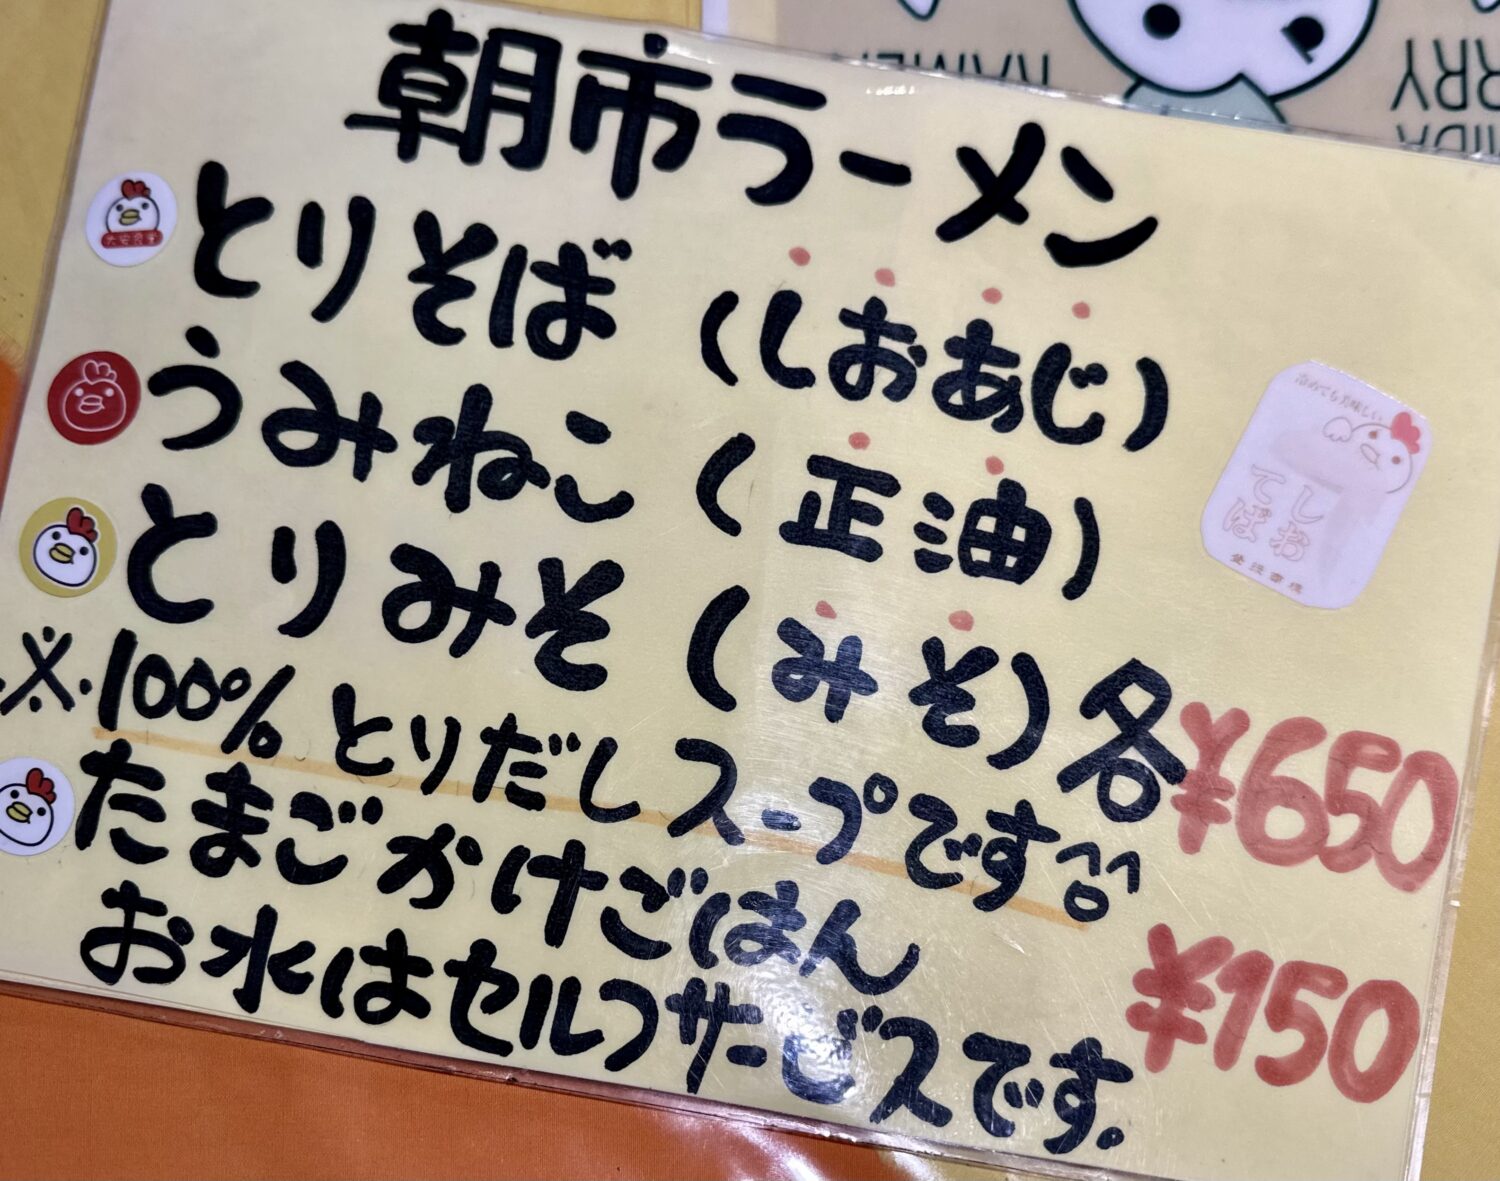 朝市ラーメン
とりそば (しおあじ)
うみねこ (正油)
とりみそ (みそ) 各¥650
※100%とりだしスープです^^
たまごかけごはん ¥150
お水はセルフサービスです。
冷めても美味しい
しお
てば
大安食堂
RAMEN